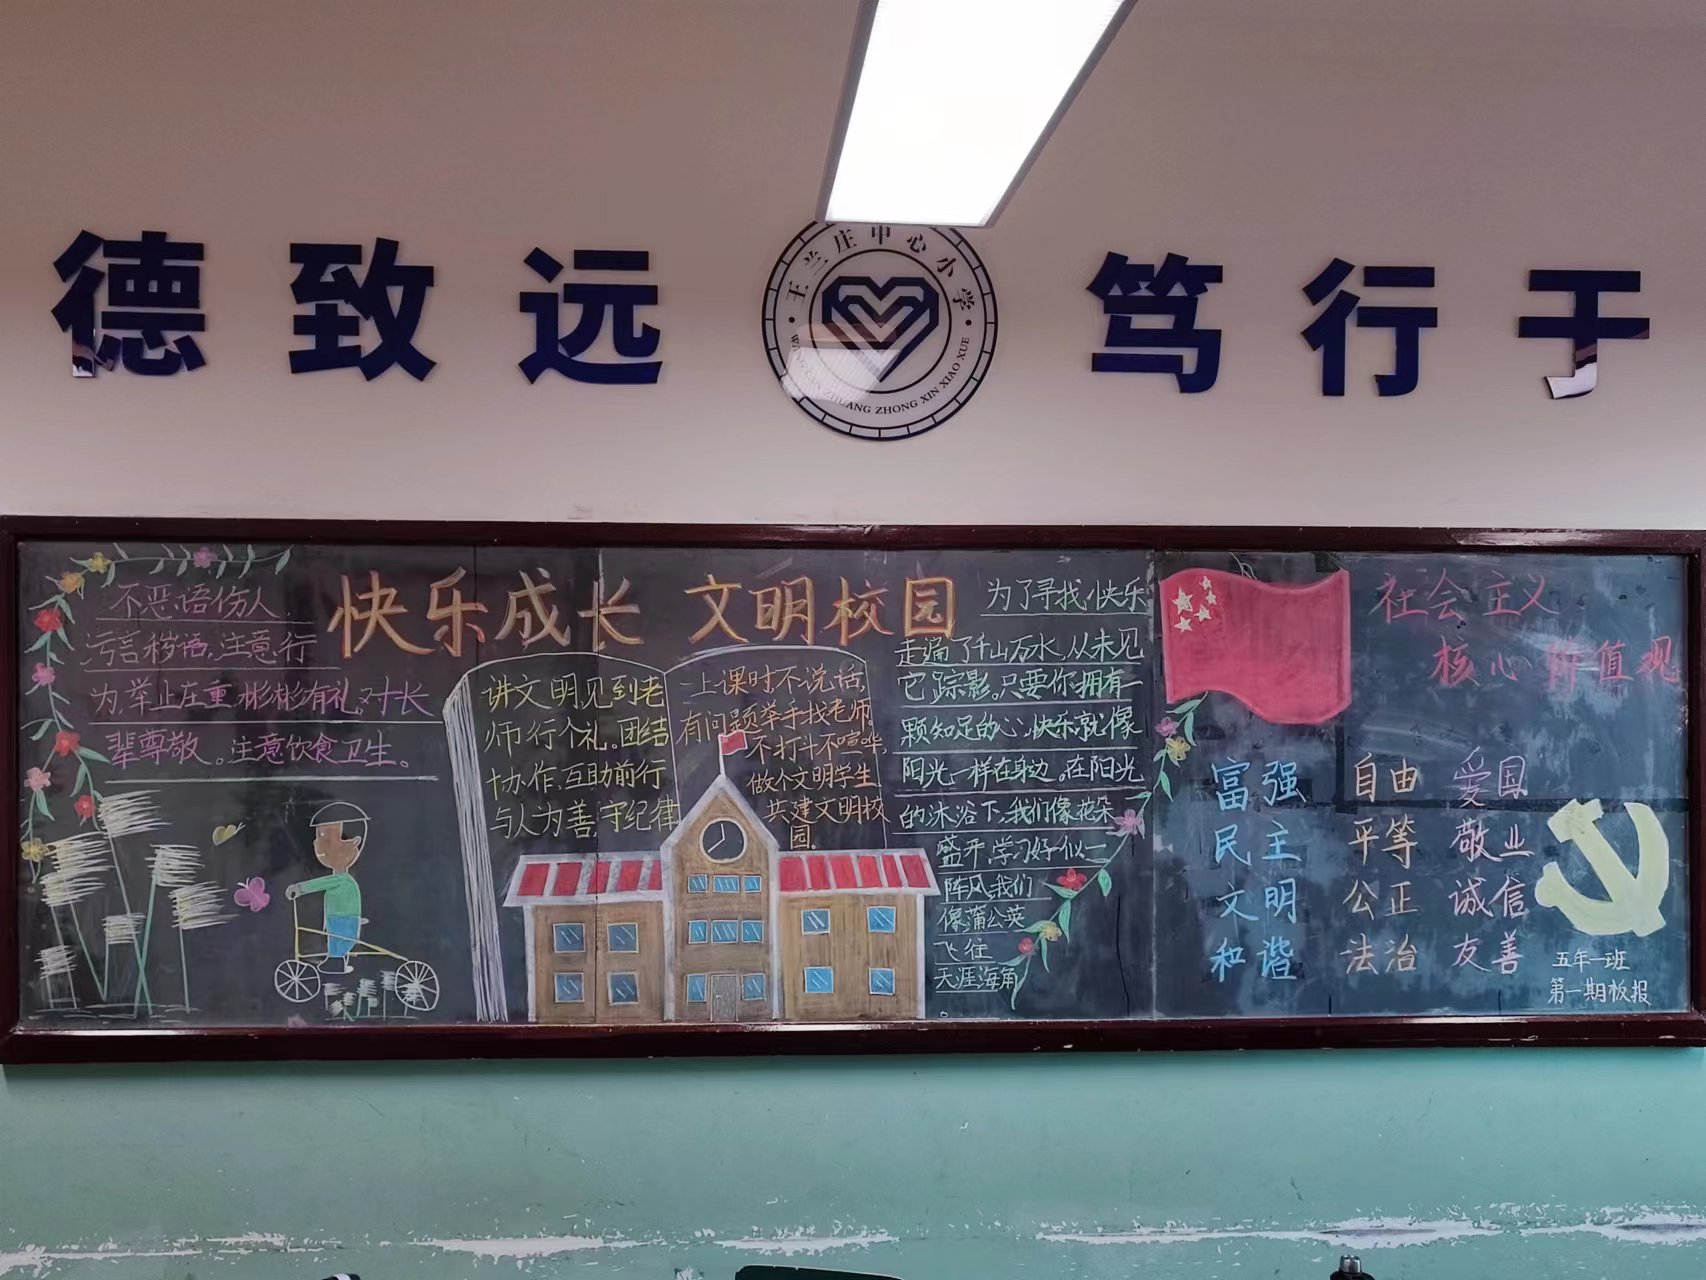 德致远
王兰庄中心小学
ZHUANG ZHONG XIN XIAO XUE
笃行于
不恶语伤人,
污言秽语,注意行
为,举止庄重,彬彬有礼。对长
辈尊敬。注意饮食卫生。
快乐成长 文明校园
讲文明,见到老
师行个礼。团结
协作,互助前行
与人为善,守纪律
上课时不说话,
有问题举手找老师。
不打斗不喧哗,
做个文明学生
共建文明校
园。
为了寻找快乐
走遍了千山石水,从未见
它踪影。只要你拥有一
颗知足的心,快乐就像
阳光一样在身边。在阳光
的沐浴下,我们像花朵
盛开,学习好似一
阵风,我们
像蒲公英
飞往
天涯海角
。
社会主义
核心价值观
富强 自由 爱国
民主 平等 敬业
文明 公正 诚信
和谐 法治 友善
五年一班
第一期板报